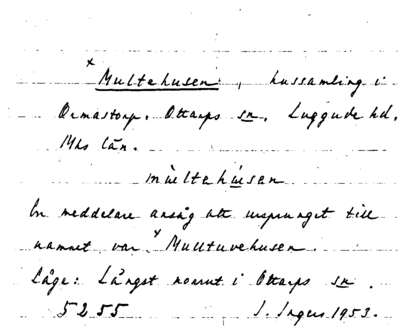 x Multehusen, hussamling i
Ormastorp. Ottarps sn. Luggude hd.
Mhs län.
mùltehùsen
En meddelare ansåg att ursprunget till
namnet var x Mulltuvehusen.
Läge: Längst norrut i Ottarps sn.
5255 I. Ingers 1953.